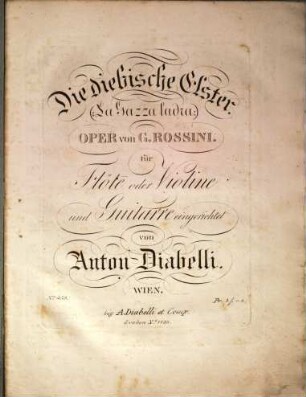 Die diebische Elster.
(La Gazza ladra)
OPER von G. ROSSINI.
für
Flöte oder Violine
und Guitarre eingerichtet
von
Anton Diabelli.
WIEN,
bey A. Diabelli et Comp.
Graben